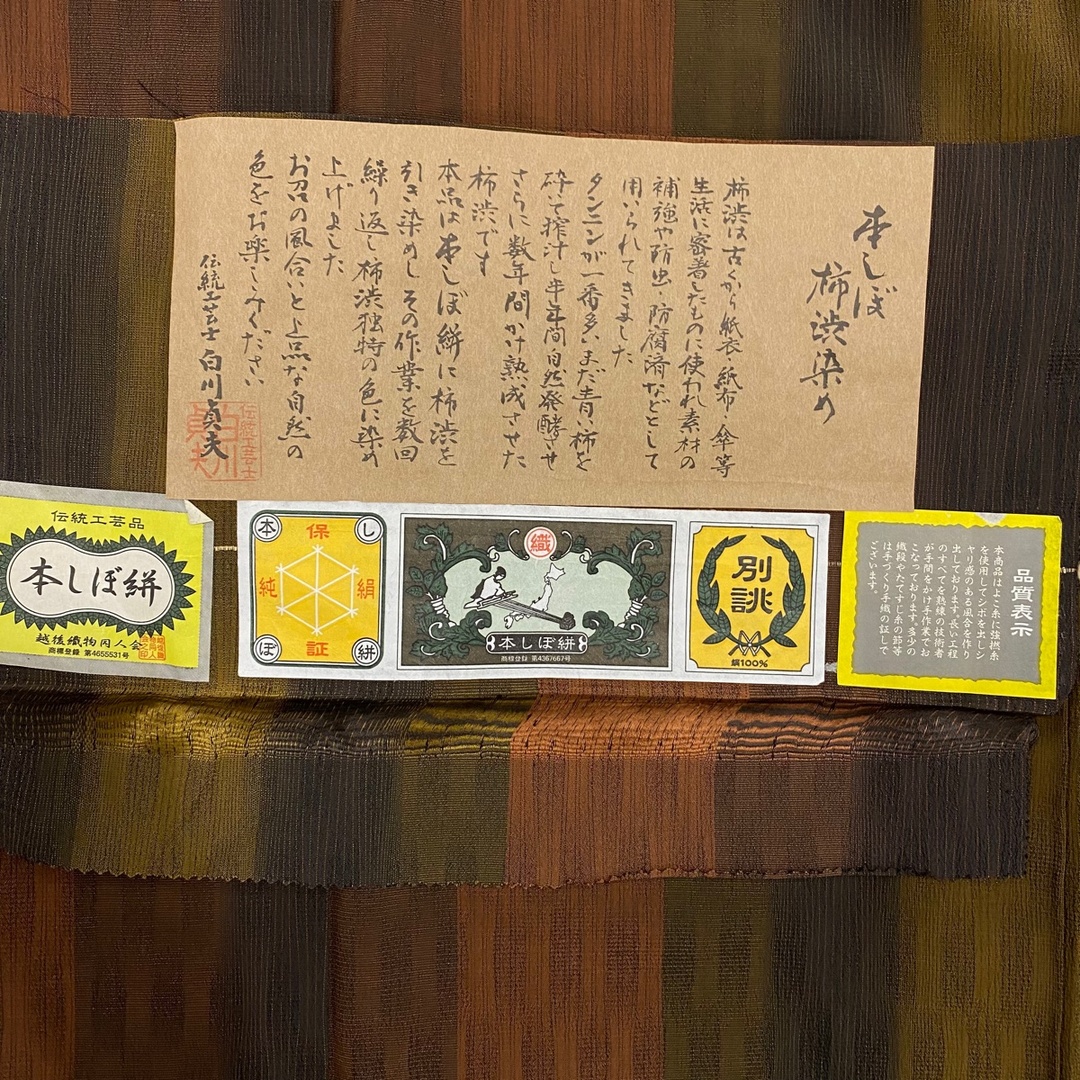 本しぼ
柿渋染め
柿渋は古くから紙衣・紙布・傘等
生活に密着したものに使われ素材の
補強や防虫・防腐済などとして
用いられてきました
タンニンが一番多いまだ青い柿を
砕いて搾汁し半年間自然発酵させ
さらに数年間かけ熟成させた
柿渋です
本品は本しぼ絣に柿渋を
引き染めしその作業を数回
繰り返し柿渋独特の色に染め
上げました
お召の風合いと上品な自然の
色をお楽しみください
伝統工芸士 白川貞夫
伝統工芸士
白川
貞夫
伝統工芸品
本しぼ絣
越後織物同人会
商標登録 第4655531号
本
保
し
純
絹
ぽ
証
絣
織
本しぼ絣
商標登録 第4367667号
別誂
絹100%
品質表示
本商品はよこ糸に強撚糸
を使用してシボを出しシ
ャリ感のある風合を作り
出しております。長い工程
のすべてを熟練の技術者
が手間をかけ手作業でお
こなっております。多少の
織段やたてすじ糸の節等
は手づくり手織の証しで
ございます。